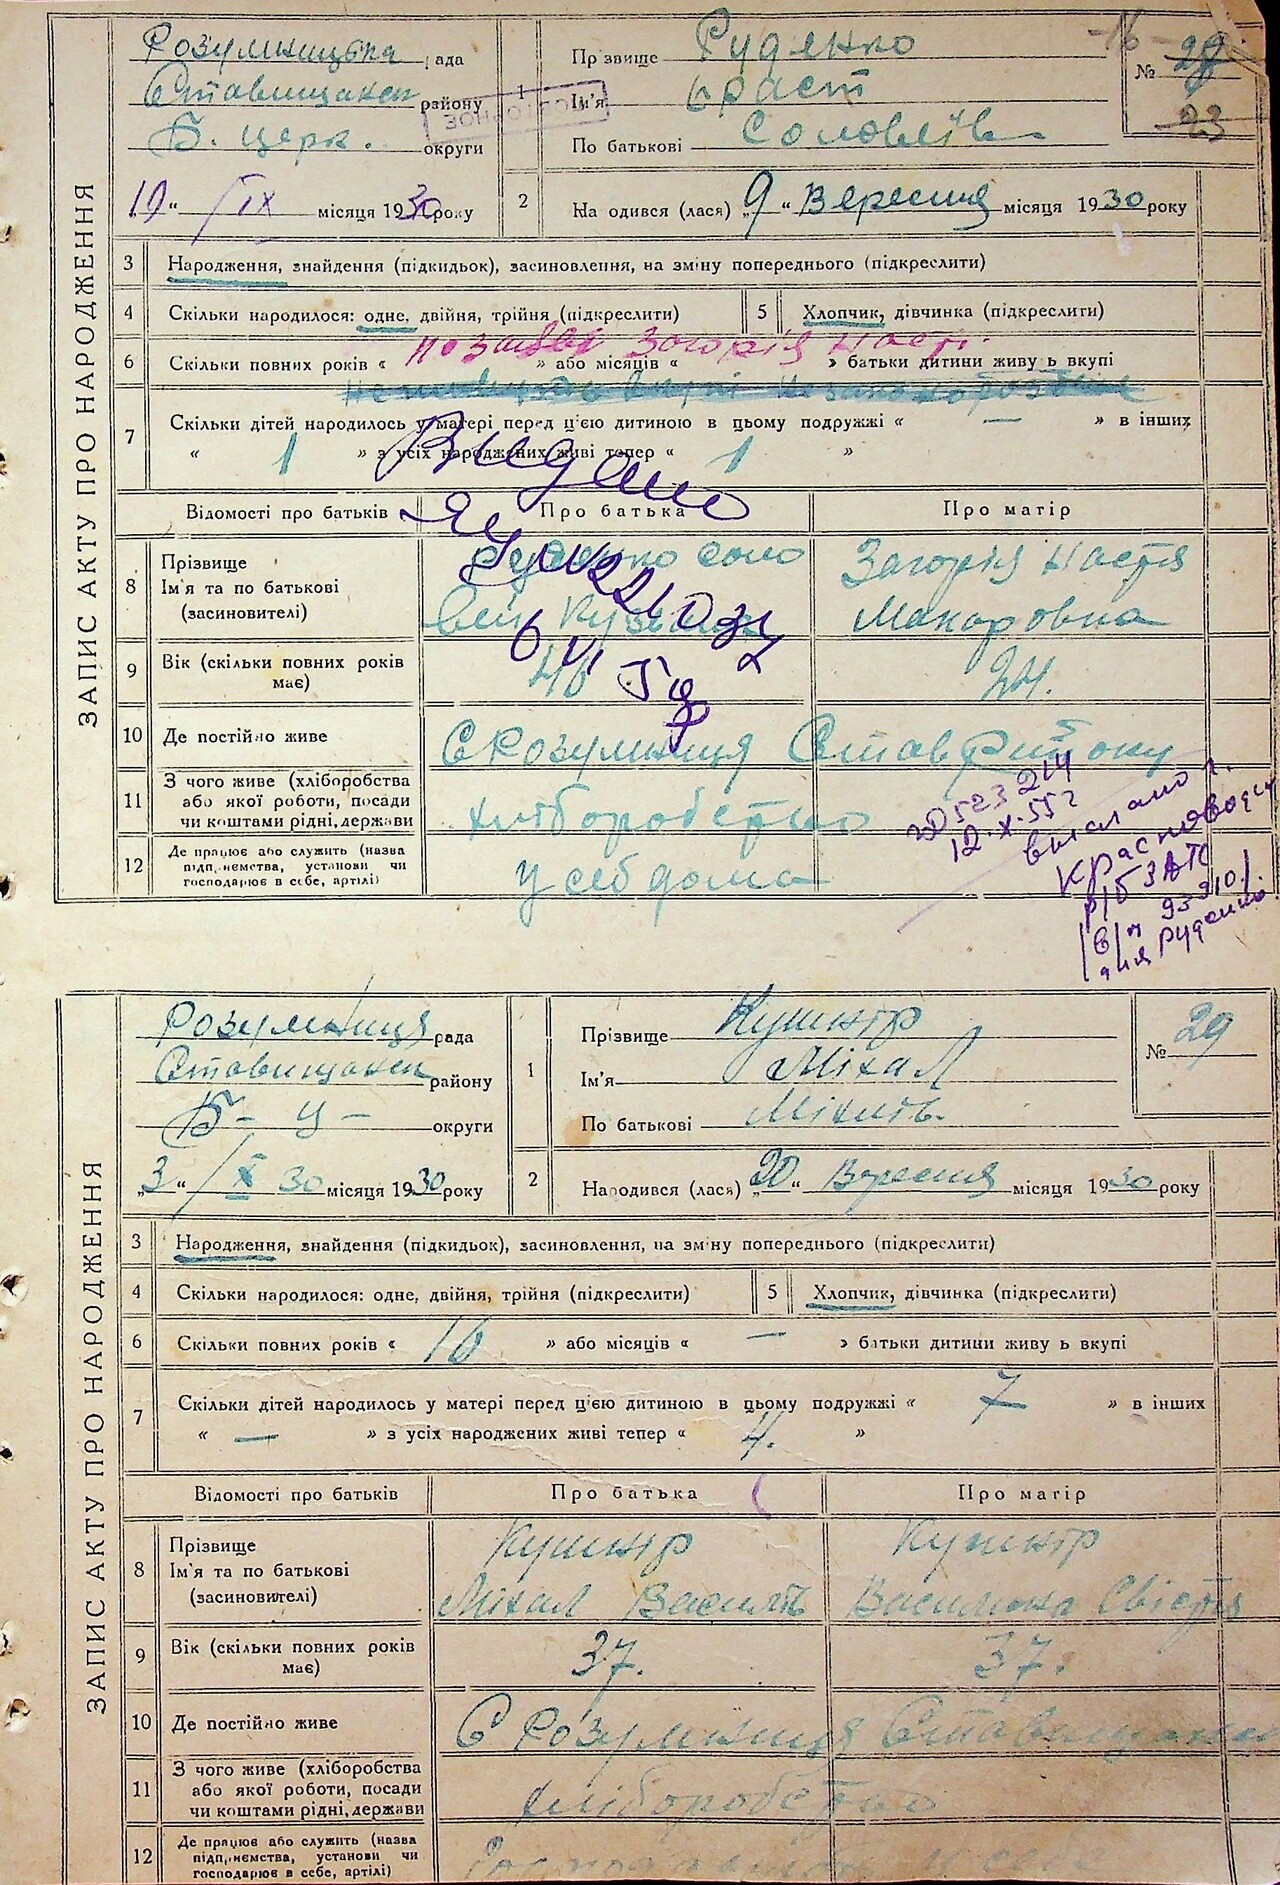 ЗАПИС АКТУ ПРО НАРОДЖЕННЯ
Розумницька рада
Ставищанск району
Б. церк. округи
19 " IX місяця 1930 року
1
Прізвище Руденко
Ім'я
По батькові
№ 28
23
16
ПОВТОРНОЕ
2 Народився (лася) „9 " Вересня місяця 1930 року
3 Народження, знайдення (підкидьок), засиновлення, на зміну попереднього (підкреслити)
4 Скільки народилося: одне, двійня, трійня (підкреслити) 5 Хлопчик, дівчинка (підкреслити)
Загорія Насті.
6 Скільки повних років « » або місяців « » батьки дитини живуть вкупі
7 Скільки дітей народилось у матері перед ц'єю дитиною в цьому подружжі « — » в інших
« 1 » з усіх народжених живі тепер « 1 »
Видано
Відомості про батьків Про батька Про матір
8 Прізвище
Ім'я та по батькові
(засиновителі)
Руденко Соло
Загорія Настя
Макаровна
9 Вік (скільки повних років має) 46 24.
10 Де постійно живе С Розумниця Став Району
11 З чого живе (хліборобства або якої роботи, посади чи коштами рідні, держави хліборобство
12 Де працює або служить (назва підприємства, установи чи господарює в себе, артілі) у себе дома
12.X.55 г
выслано г.
Красноводск
для Руденко
ЗАПИС АКТУ ПРО НАРОДЖЕННЯ
Розумниця рада
Ставищанск району
Б - Ц - округи
„3 " / X 30 місяця 1930 року
1
Прізвище Кушнір
Ім'я Міхал
По батькові Міхилів
№ 29
2 Народився (лася) „20 " Вересня місяця 1930 року
3 Народження, знайдення (підкидьок), засиновлення, на зміну попереднього (підкреслити)
4 Скільки народилося: одне, двійня, трійня (підкреслити) 5 Хлопчик, дівчинка (підкреслити)
6 Скільки повних років « 16 » або місяців « — » батьки дитини живуть вкупі
7 Скільки дітей народилось у матері перед ц'єю дитиною в цьому подружжі « 7 » в інших
« — » з усіх народжених живі тепер « 4. »
Відомості про батьків Про батька Про матір
8 Прізвище
Ім'я та по батькові
(засиновителі)
Кушнір Кушнір
Міхал Василів
9 Вік (скільки повних років має) 37. 37.
10 Де постійно живе С Розумниця Ставищанск
11 З чого живе (хліборобства або якої роботи, посади чи коштами рідні, держави хліборобство
12 Де працює або служить (назва підприємства, установи чи господарює в себе, артілі)